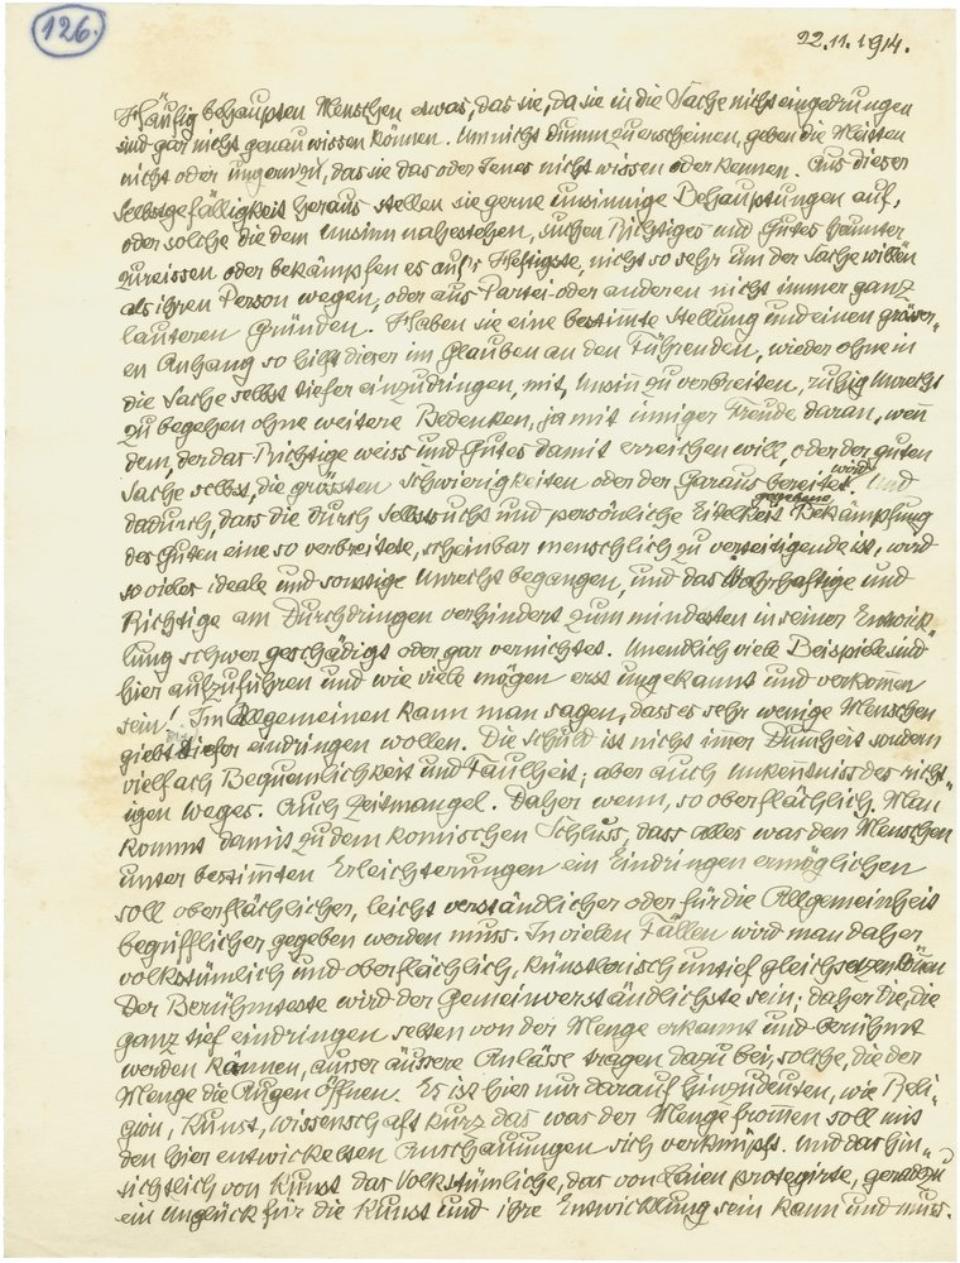 126.
22.11.1914.
Häufig behaupten Menschen etwas, das sie, da sie in die Sache nicht eingedrungen
sind gar nicht genau wissen können. Um nicht dumm zu erscheinen, geben die Meisten
nicht oder ungern zu, das sie das oder Jenes nicht wissen oder kennen. Aus dieser
Selbstgefälligkeit heraus stellen sie gerne unsinnige Behauptungen auf,
oder solche die dem Unsinn nahestehen, suchen Richtiges und Gutes herunter
zureissen oder bekämpfen es auf's Heftigste, nicht so sehr um der Sache willen
als ihren Person wegen, oder aus Partei- oder anderen nicht immer ganz
lauteren Gründen. Haben sie eine bestim̅te Stellung und einen grösser„
en Anhang so hilft dieser im Glauben an den Führenden, wieder ohne in
die Sache selbst tiefer einzudringen, mit, Unsin̅ zu verbreiten, ruhig Unrecht
zu begehen ohne weitere Bedenken, ja mit inniger Freude daran, wen̅
dem, der das Richtige weiss und Gutes damit erreichen will, oder der guten
Sache selbst, die grössten Schwierigkeiten oder der Garaus bereitet wird. Und
dadurch, dass die durch Selbstsucht und persönliche Eitelkeit gegebene Bekämpfung
des Guten eine so verbreitete, scheinbar menschlich zu verteitigende ist, wird
so vieles ideale und sonstige Unrecht begangen, und das Wahrhaftige und
Richtige am Durchdringen verhindert zum mindesten in seiner Entwick„
lung schwer geschädigt oder gar vernichtet. Unendlich viele Beispiele sind
hier aufzuführen und wie viele mögen erst ungekannt und verkom̅en
sein! Im Allgemeinen kann man sagen, dass es sehr wenige Menschen
giebt die tiefer eindringen wollen. Die Schuld ist nicht im̅er Dum̅heit sondern
vielfach Bequemlichkeit und Faulheit; aber auch Unken̅tniss des richt„
igen Weges. Auch Zeitmangel. Daher wenn, so oberflächlich. Man
kommt damit zu dem komischen Schluss, dass alles was den Menschen
unter bestim̅ten Erleichterungen ein Eindringen ermöglichen
soll oberflächlicher, leicht verständlicher oder für die Allgemeinheit
begrifflicher gegeben werden muss. In vielen Fällen wird man daher
volkstümlich und oberflächlich, künstlerisch untief gleichsetzen kön̅en
Der Berühmteste wird der Gemeinverständlichste sein; daher die, die
ganz tief eindringen selten von der Menge erkannt und berühmt
werden können, ausser äussere Anlässe tragen dazu bei, solche, die der
Menge die Augen öffnen. Es ist hier nur darauf hinzudeuten, wie Reli„
gion, Kunst, Wissenschaft kurz das was der Menge from̅en soll mit
den hier entwickelten Anschauungen sich verknüpft. Und das hin„
sichtlich von Kunst das Volkstümliche, das von Laien protegirte, geradezu
ein Unglück für die Kunst und ihre Entwicklung sein kann und muss.